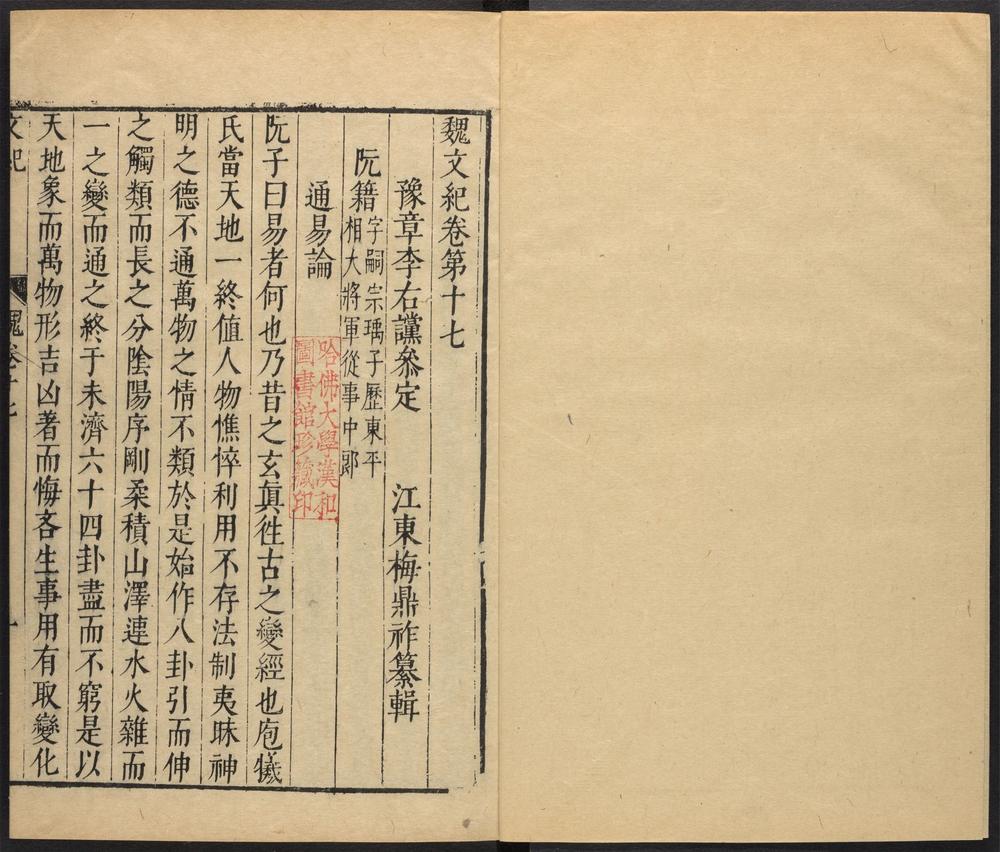 魏文紀卷第十七
豫章李右讜叅定　江東梅鼎祚纂輯
阮籍字嗣宗瑀子歷東平
相大將軍從事中郎
通易論
哈佛大學漢和
圖書館珍藏印
阮子曰易者何也乃昔之玄眞徃古之變經也庖犧
氏當天地一終值人物憔悴利用不存法制夷昧神
明之德不通萬物之情不類於是始作八卦引而伸
之觸類而長之分陰陽序剛柔積山澤連水火雜而
一之變而通之終于未濟六十四卦盡而不窮是以
天地象而萬物形吉凶著而悔吝生事用有取變化
文紀　魏卷十七　一